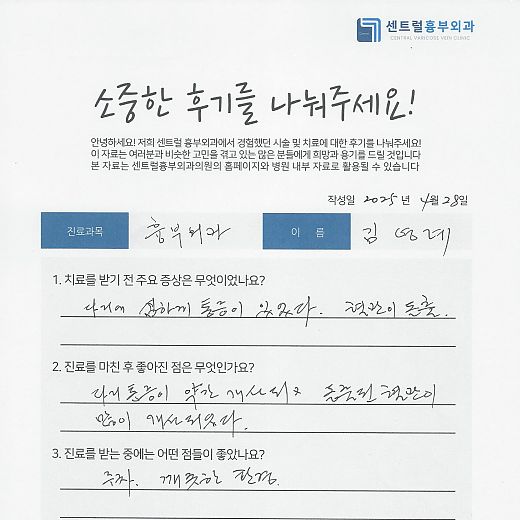 센트럴흉부외과
CENTRAL VARICOSE VEIN CLINIC
소중한 후기를 나눠주세요!
안녕하세요! 저희 센트럴 흉부외과에서 경험했던 시술 및 치료에 대한 후기를 나눠주세요!
이 자료는 여러분과 비슷한 고민을 겪고 있는 많은 분들에게 희망과 용기를 드릴 것입니다
본 자료는 센트럴흉부외과의원의 홈페이지와 병원 내부 자료로 활용될 수 있습니다
작성일 2025년 4월 28일
진료과목 흉부외과 이 름 김
1. 치료를 받기 전 주요 증상은 무엇이었나요?
다리에 심하게 통증이 있었다. 혈관이 돌출.
2. 진료를 마친 후 좋아진 점은 무엇인가요?
다리통증이 약간 개선되 돌출된 혈관이
많이 개선되었다.
3. 진료를 받는 중에는 어떤 점들이 좋았나요?
주차. 깨끗한 환경.